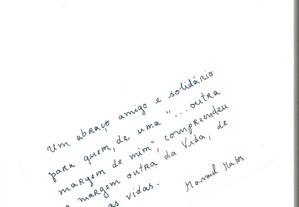 um abraço amigo e solidário
para quem, de uma "... outra
margem de mim", compreendeu
a margem outra da Vida, de
as vidas.
Manuel